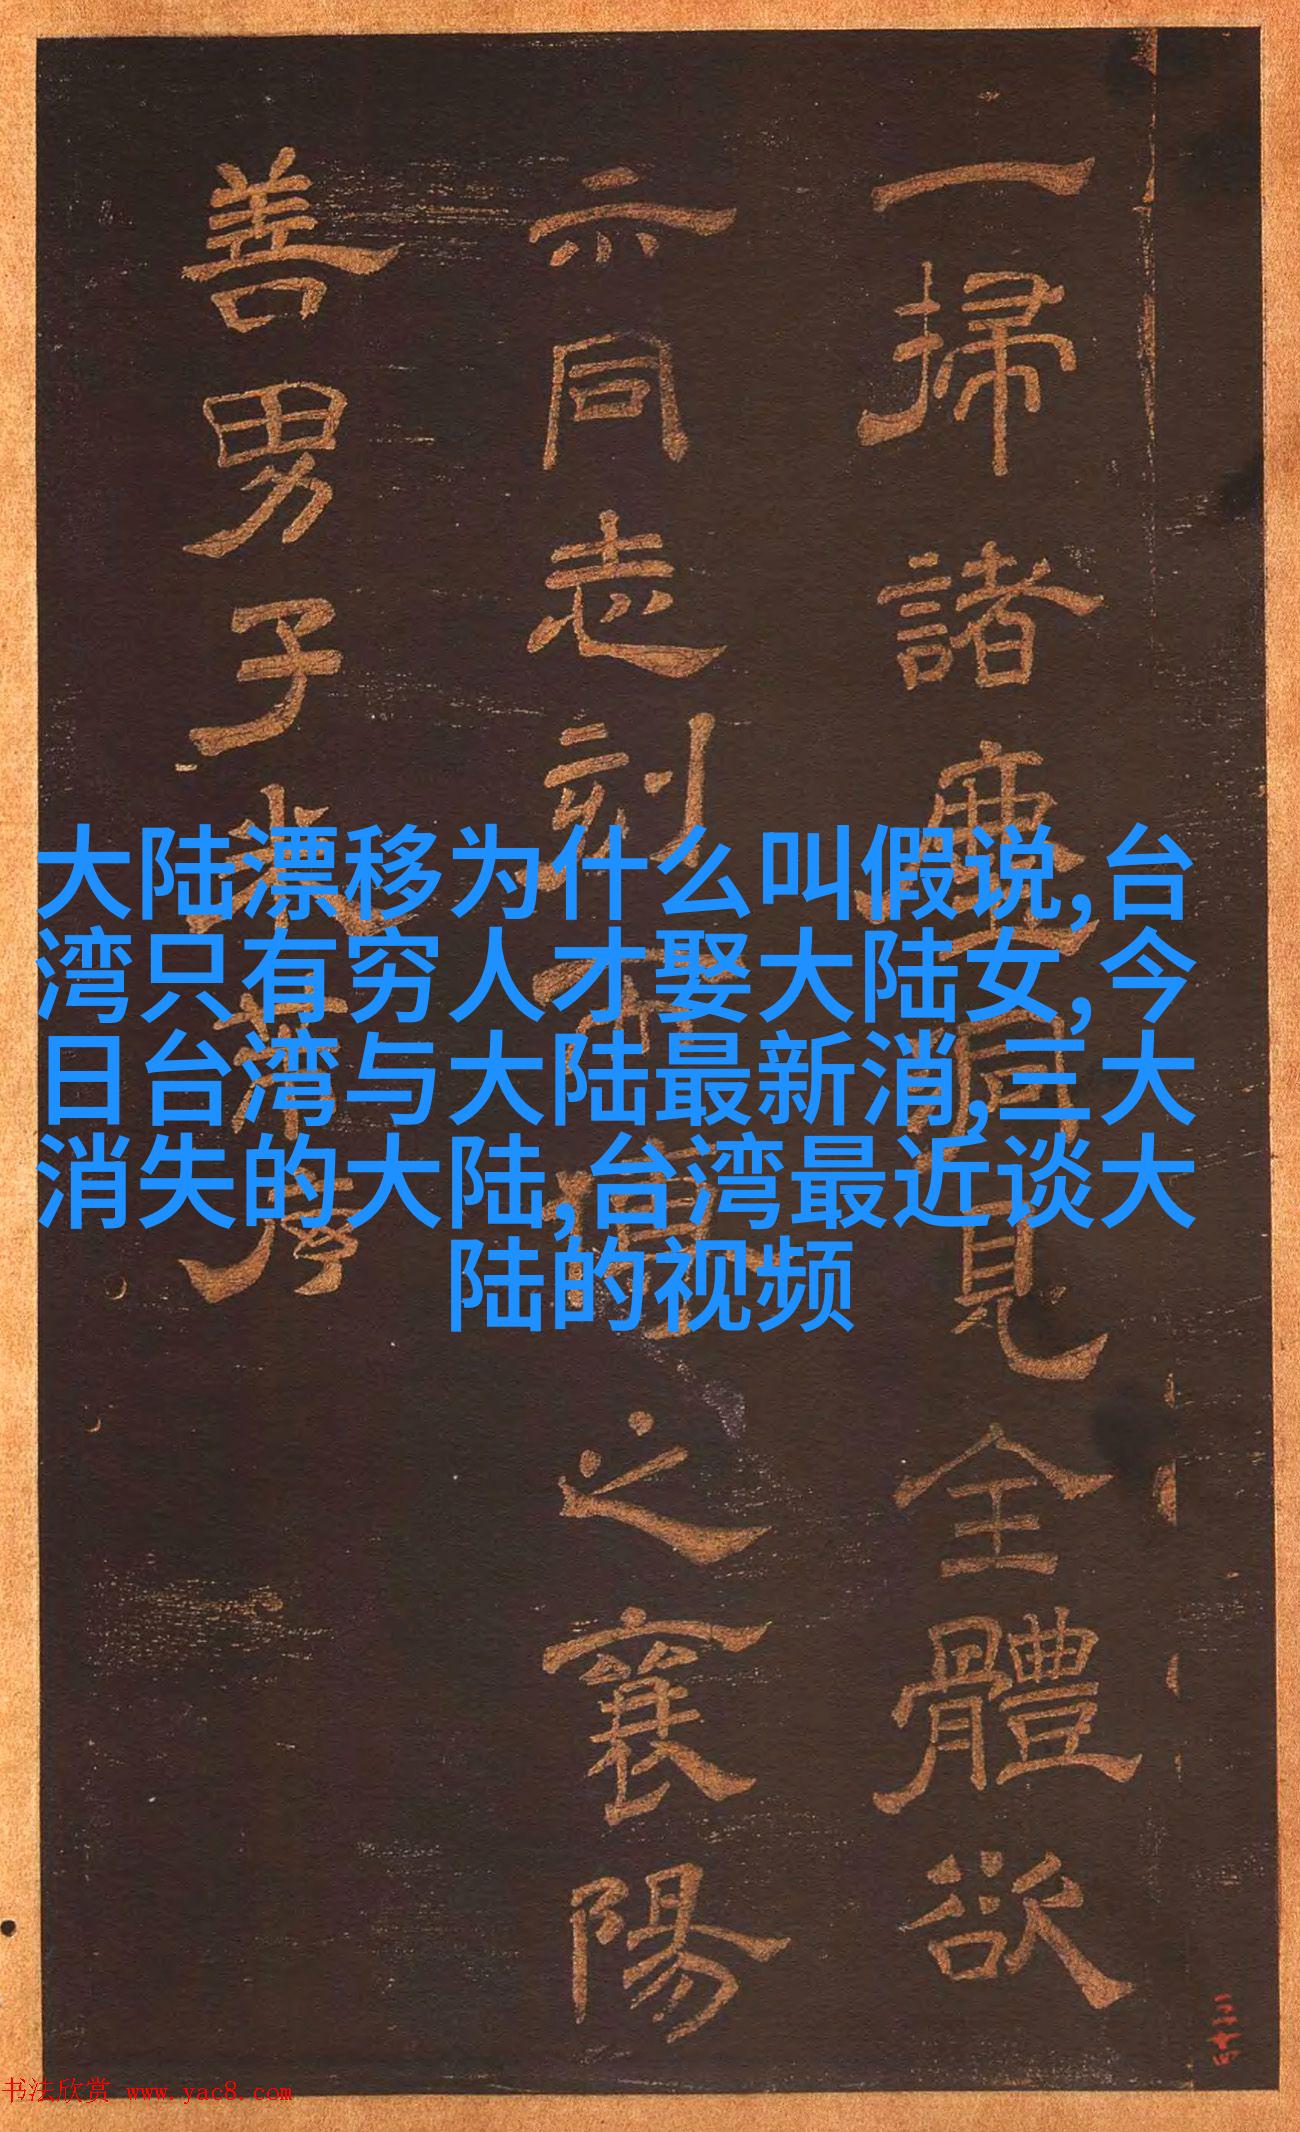 一掃諸塵洞見全體欲
示同志刻之襄陽
善男子
大陆漂移为什么叫假说,台
湾只有穷人才娶大陆女,今
日台湾与大陆最新消,三大
消失的大陆,台湾最近谈大
陆的视频
三十四
书法欣赏 www.yac8.com